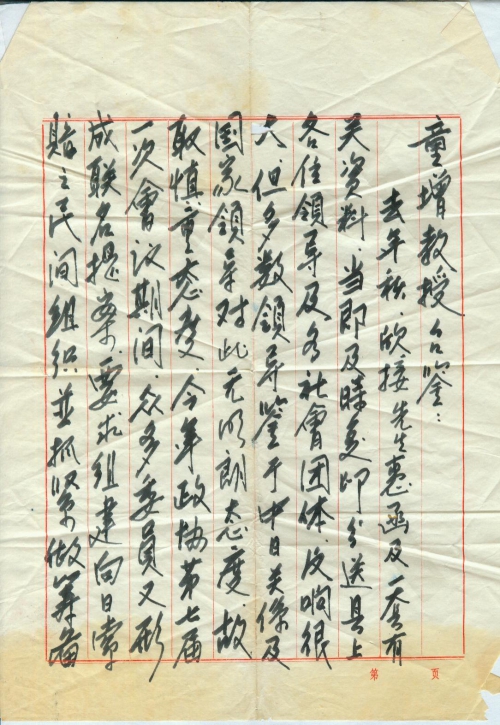 童增教授台鉴：
去年秋，欣接先生惠函及一大套有
关资料，当即及时复印分送县上
各位领导及各社會团体，反响很
大，但多数领导鉴于中日关係及
国家领导对此无明朗态度，故
取慎重态度，今年政协第七届
一次會议期间，众多委员又形
成联名提案，要求组建向日索
赔之民间组织並抓紧做筹备
第 页